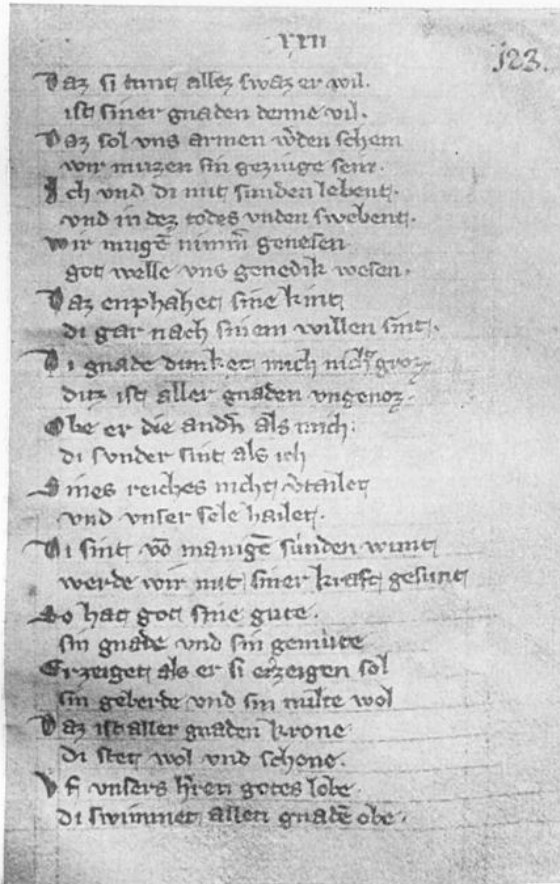 XXII
123.
Daz si tunt allez swaz er wil.
ist siner gnaden denne vil.
Daz sol vns armen w̄den schein
wir muzen sin geziuge sein.
Ich vnd di mit sunden lebent.
vnd in dez todes vnden swebent.
wir mugē nimm̄ genesen
got welle vns genedik wesen.
Daz enphahet sine kint
di gar nach sinem willen sint.
Di gnade dunket mich nicht groz
ditz ist aller gnaden vngenoz.
Obe er die andn̄ als mich.
di sunder sint als ich
Sines reiches nicht v̄tailet
vnd vnser sele hailet.
Di sint vō manigē sunden wunt
werde wir mit siner kraft gesunt
So hat got sine gute.
sin gnade vnd sin gemüte
Erzeiget als er si erzeigen sol
sin geberde vnd sin milte wol
Daz ist aller gnaden krone
di stet wol vnd schone.
Vf vnsers hr̄en gotes lobe.
di swimmet allen gnadē obe.